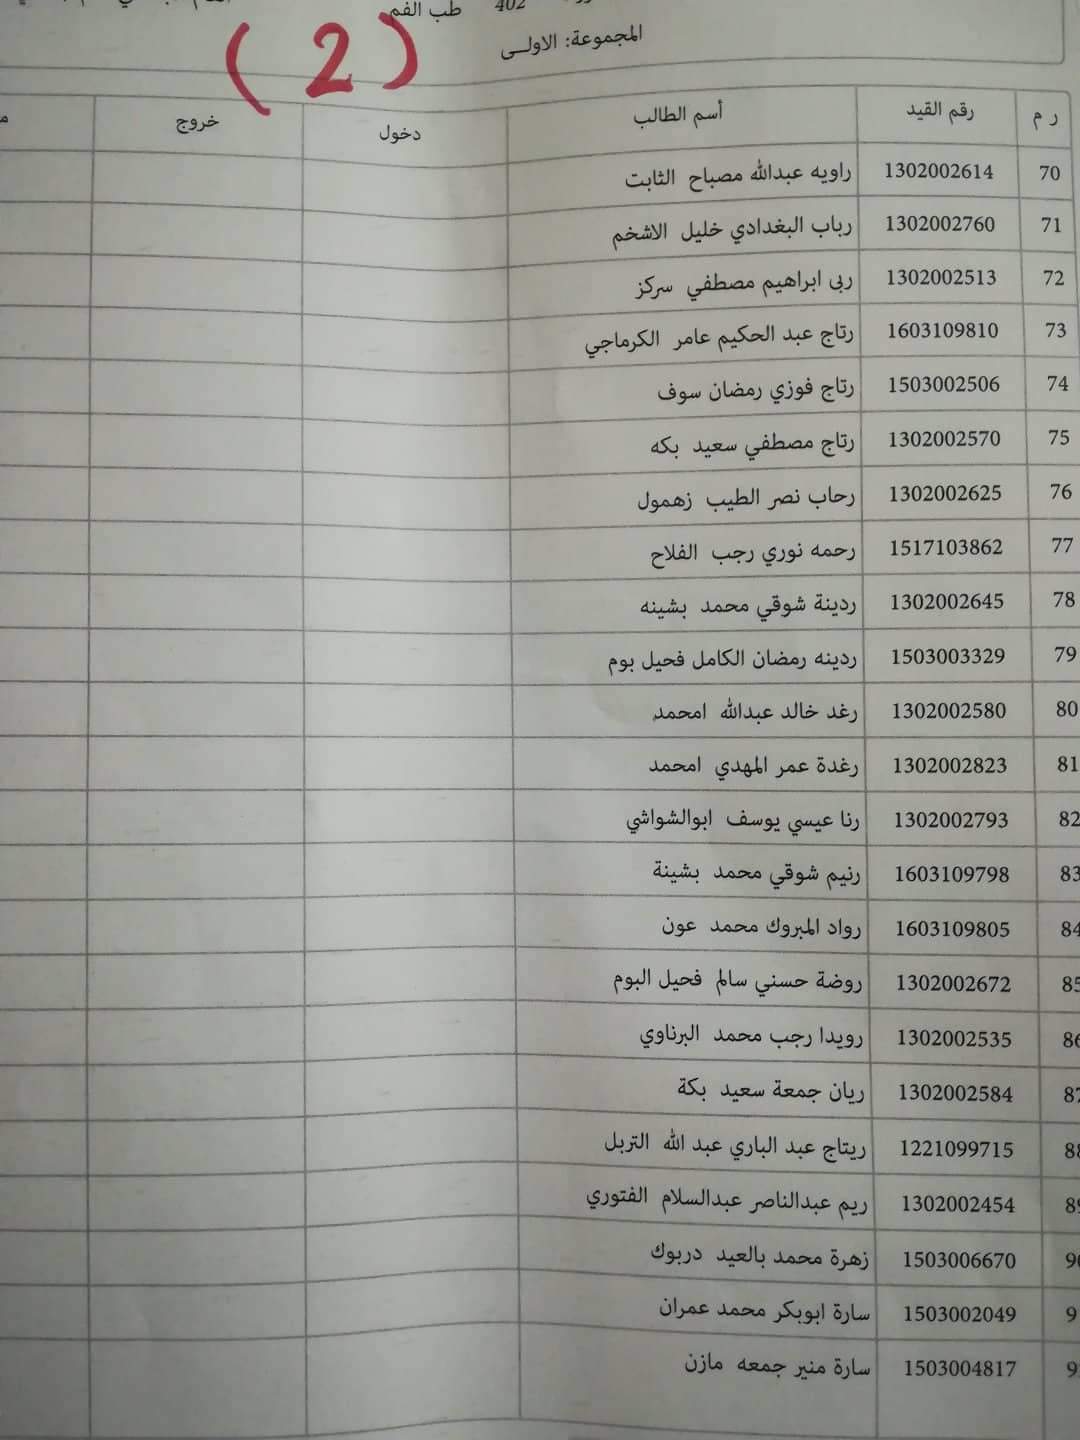 402 طب الفم
المجموعة: الاولـى
(2)
ر م رقم القيد أسم الطالب دخول خروج
70 1302002614 راويه عبدالله مصباح الثابت
71 1302002760 رباب البغدادي خليل الاشخم
72 1302002513 ربى ابراهيم مصطفي سركز
73 1603109810 رتاج عبد الحكيم عامر الكرماجي
74 1503002506 رتاج فوزي رمضان سوف
75 1302002570 رتاج مصطفي سعيد بكه
76 1302002625 رحاب نصر الطيب زهمول
77 1517103862 رحمه نوري رجب الفلاح
78 1302002645 ردينة شوقي محمد بشينه
79 1503003329 ردينه رمضان الكامل فحيل بوم
80 1302002580 رغد خالد عبدالله امحمد
81 1302002823 رغدة عمر المهدي امحمد
82 1302002793 رنا عيسي يوسف ابوالشواشي
83 1603109798 رنيم شوقي محمد بشينة
84 1603109805 رواد المبروك محمد عون
85 1302002672 روضة حسني سالم فحيل البوم
86 1302002535 رويدا رجب محمد البرناوي
87 1302002584 ريان جمعة سعيد بكة
88 1221099715 ريتاج عبد الباري عبد الله التربل
89 1302002454 ريم عبدالناصر عبدالسلام الفتوري
90 1503006670 زهرة محمد بالعيد دربوك
9 1503002049 سارة ابوبكر محمد عمران
9 1503004817 سارة منير جمعه مازن